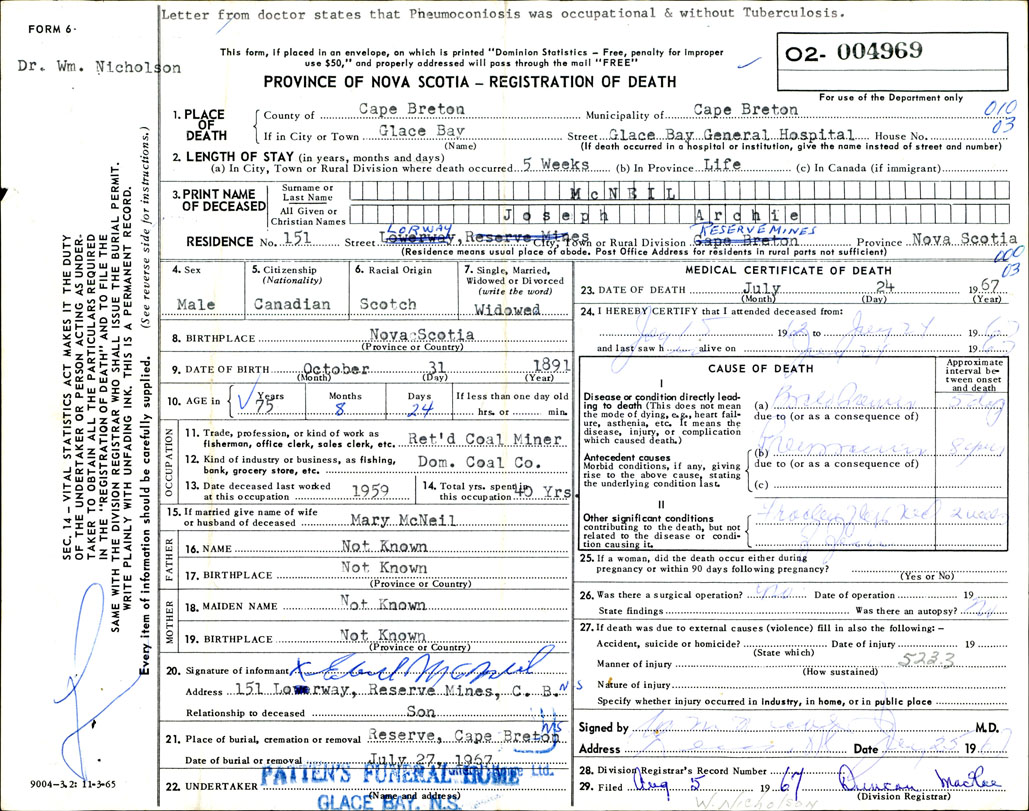 Letter from doctor states that Pneumoconiosis was occupational & without Tuberculosis.
FORM 6.
Dr. Wm. Nicholson
This form, if placed in an envelope, on which is printed "Dominion Statistics – Free, penalty for improper
use $50," and properly addressed will pass through the mail "FREE"
O2- 004969
PROVINCE OF NOVA SCOTIA – REGISTRATION OF DEATH
For use of the Department only
010
03
1. PLACE OF DEATH
County of Cape Breton Municipality of Cape Breton
If in City or Town Glace Bay Street Glace Bay General Hospital House No.
(Name) (If death occurred in a hospital or institution, give the name instead of street and number)
2. LENGTH OF STAY (in years, months and days)
(a) In City, Town or Rural Division where death occurred 5 Weeks (b) In Province Life (c) In Canada (if immigrant)
3. PRINT NAME OF DECEASED
Surname or Last Name McNEIL
All Given or Christian Names Joseph Archie
LORWAY RESERVE MINES
RESIDENCE No. 151 Street Lowerway, Reserve Mines City, Town or Rural Division Cape Breton Province Nova Scotia
(Residence means usual place of abode. Post Office Address for residents in rural parts not sufficient)
000
03
4. Sex Male
5. Citizenship (Nationality) Canadian
6. Racial Origin Scotch
7. Single, Married, Widowed or Divorced (write the word) Widowed
8. BIRTHPLACE Nova Scotia
(Province or Country)
9. DATE OF BIRTH October 31 1891
(Month) (Day) (Year)
10. AGE in Years 75 Months 8 Days 24 If less than one day old hrs. or min.
OCCUPATION
11. Trade, profession, or kind of work as fisherman, office clerk, sales clerk, etc. Ret'd Coal Miner
12. Kind of industry or business, as fishing, bank, grocery store, etc. Dom. Coal Co.
13. Date deceased last worked at this occupation 1959
14. Total yrs. spent in this occupation 40 Yrs.
15. If married give name of wife or husband of deceased Mary McNeil
FATHER
16. NAME Not Known
17. BIRTHPLACE Not Known
(Province or Country)
MOTHER
18. MAIDEN NAME Not Known
19. BIRTHPLACE Not Known
(Province or Country)
20. Signature of informant X
Address 151 Lowerway, Reserve Mines, C. B. N S
Relationship to deceased Son
21. Place of burial, cremation or removal Reserve, Cape Breton NS
Date of burial or removal July 27, 1967
22. UNDERTAKER PATTEN'S FUNERAL HOME Ltd.
(Name and address)
GLACE BAY, N.S.
MEDICAL CERTIFICATE OF DEATH
23. DATE OF DEATH July 24 1967
(Month) (Day) (Year)
24. I HEREBY CERTIFY that I attended deceased from:
19 to 19
and last saw h alive on 19
CAUSE OF DEATH
Approximate interval between onset and death
I
Disease or condition directly leading to death (This does not mean the mode of dying, e.g., heart failure, asthenia, etc. It means the disease, injury, or complication which caused death.)
(a)
due to (or as a consequence of)
Antecedent causes
Morbid conditions, if any, giving rise to the above cause, stating the underlying condition last.
(b)
due to (or as a consequence of)
(c)
II
Other significant conditions contributing to the death, but not related to the disease or condition causing it.
25. If a woman, did the death occur either during pregnancy or within 90 days following pregnancy?
(Yes or No)
26. Was there a surgical operation? No Date of operation 19
State findings Was there an autopsy? No
27. If death was due to external causes (violence) fill in also the following: –
Accident, suicide or homicide? Date of injury 19
(State which)
523.3
Manner of injury
(How sustained)
Nature of injury
Specify whether injury occurred in industry, in home, or in public place
Signed by M.D.
Address Date 25 19
28. Division Registrar's Record Number
29. Filed Aug 5 1967 Duncan MacRae
(Division Registrar)
W. Nicholson
SEC. 14 – VITAL STATISTICS ACT MAKES IT THE DUTY
OF THE UNDERTAKER OR PERSON ACTING AS UNDER-
TAKER TO OBTAIN ALL THE PARTICULARS REQUIRED
IN THE "REGISTRATION OF DEATH" AND TO FILE THE
SAME WITH THE DIVISION REGISTRAR WHO SHALL ISSUE THE BURIAL PERMIT.
WRITE PLAINLY WITH UNFADING INK. THIS IS A PERMANENT RECORD.
Every item of information should be carefully supplied. (See reverse side for instructions.)
9004–3.2: 11-3-65